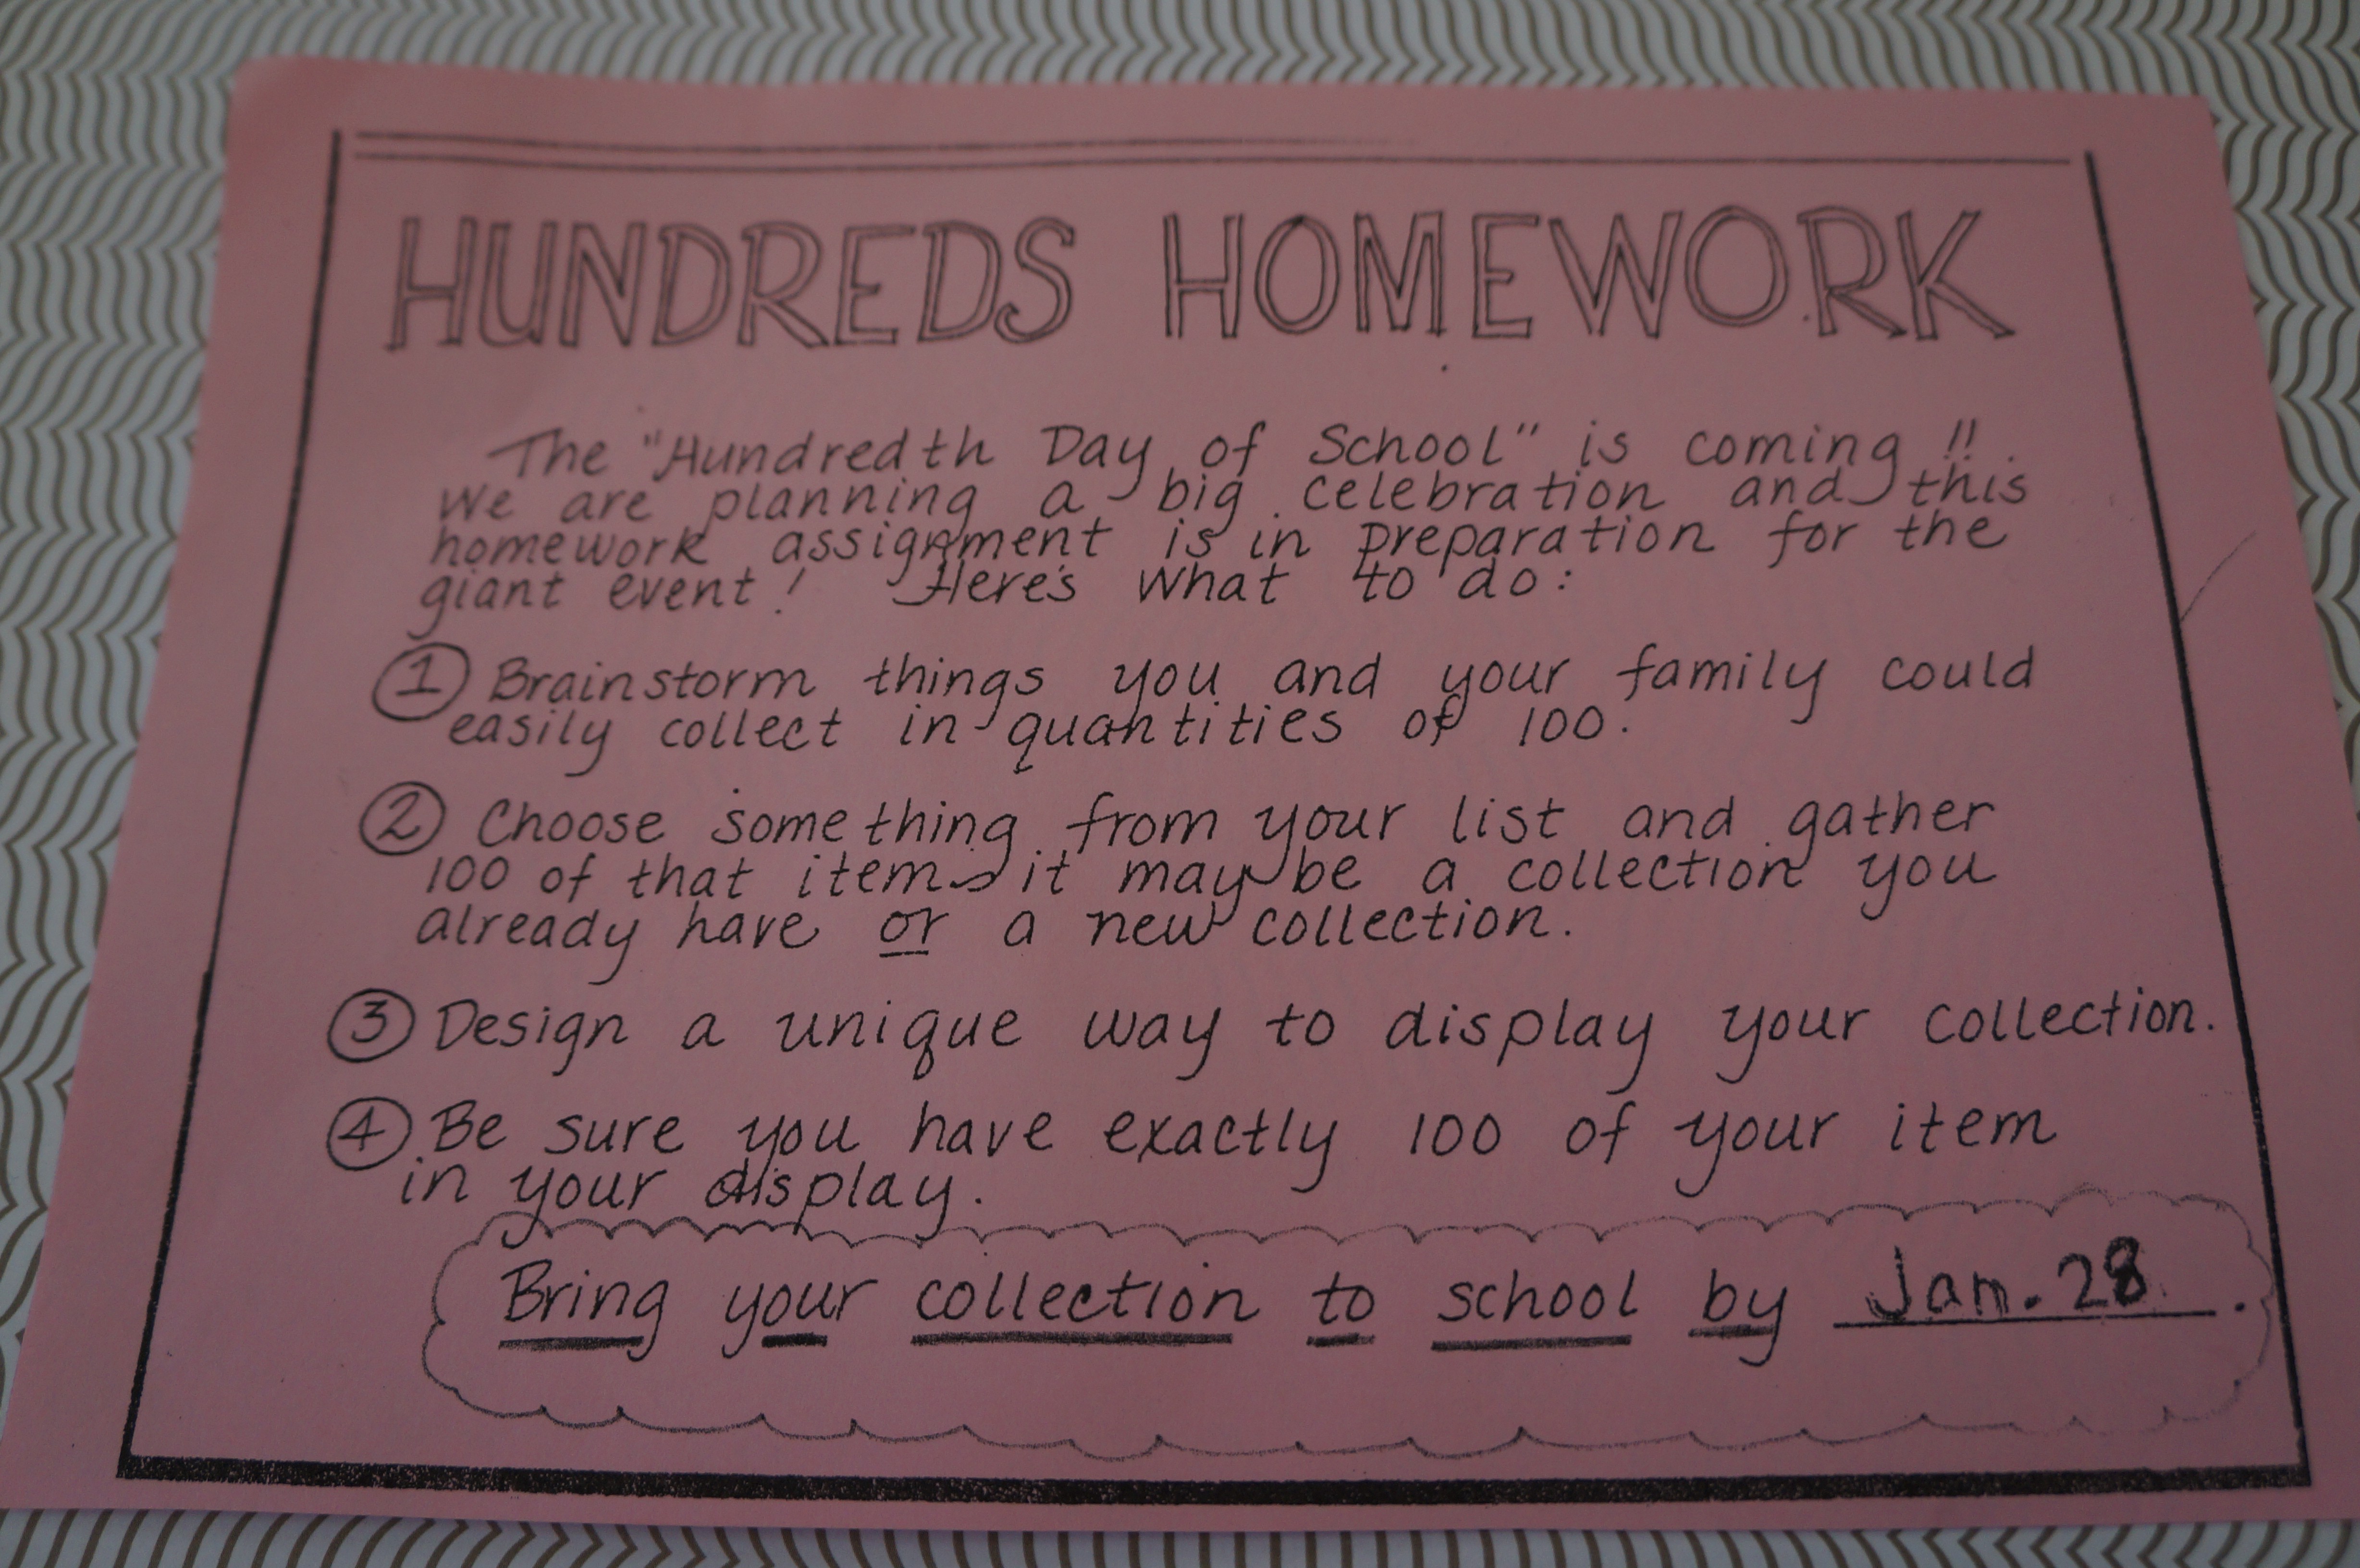 HUNDREDS HOMEWORK
The "Hundredth Day of School" is coming!!
We are planning a big celebration and this
homework assignment is in preparation for the
giant event! Here's what to do:
① Brainstorm things you and your family could
easily collect in quantities of 100.
② Choose something from your list and gather
100 of that item - it may be a collection you
already have or a new collection.
③ Design a unique way to display your collection.
④ Be sure you have exactly 100 of your item
in your display.
Bring your collection to school by Jan. 28.